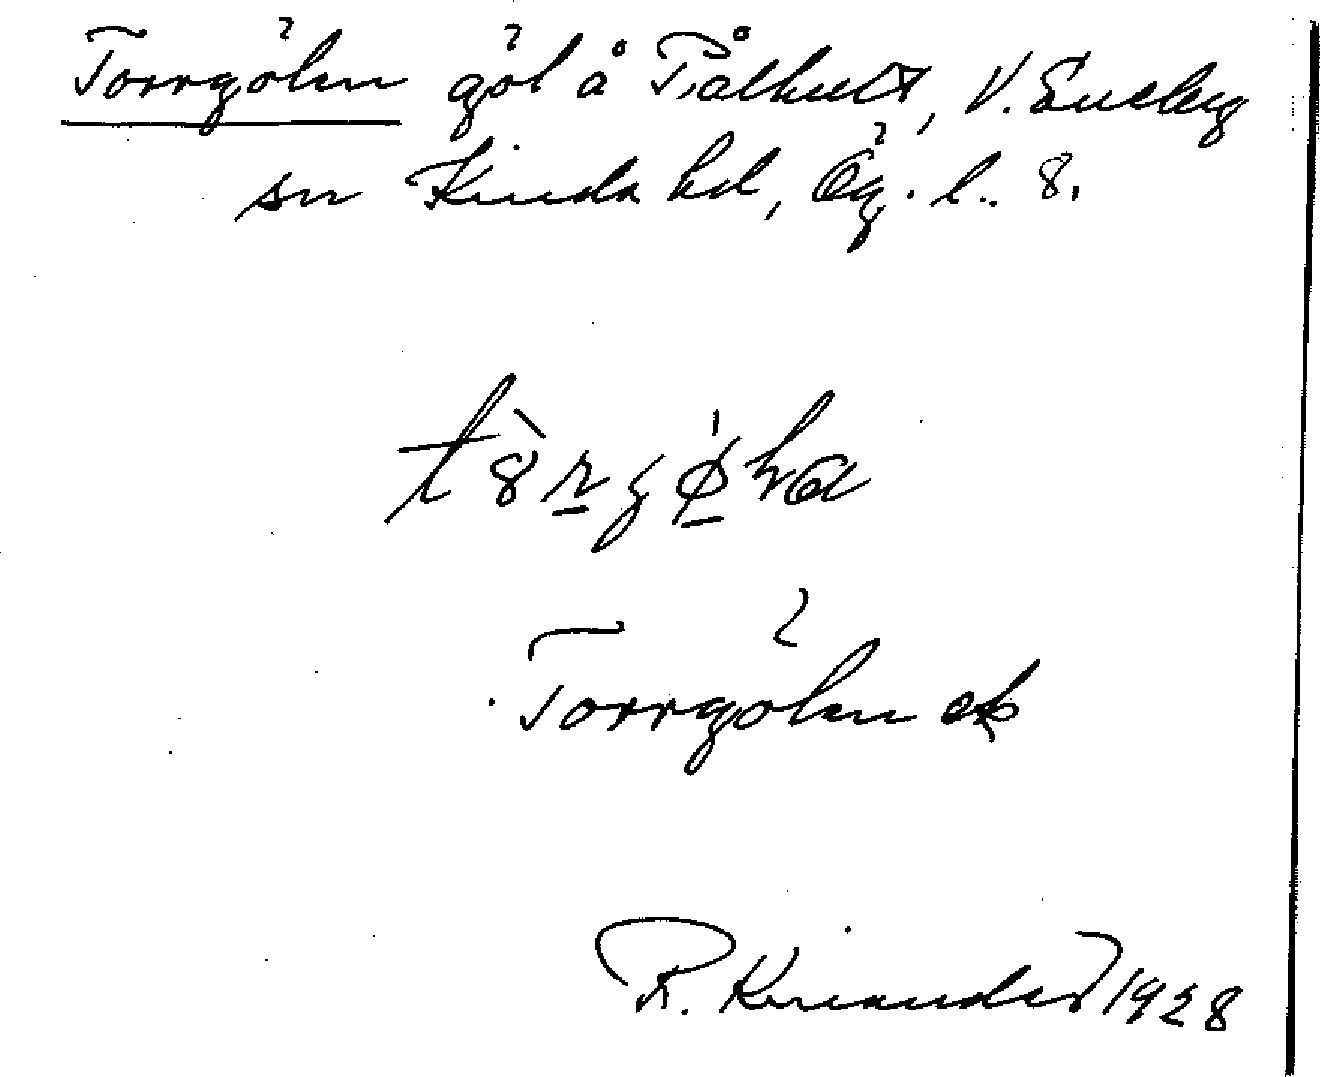 Torrgölen göl å Pålhult, V. Eneby
sn Kinda hd, Ög. l. 8.
Torrgölen ek
R. Kinander 1928